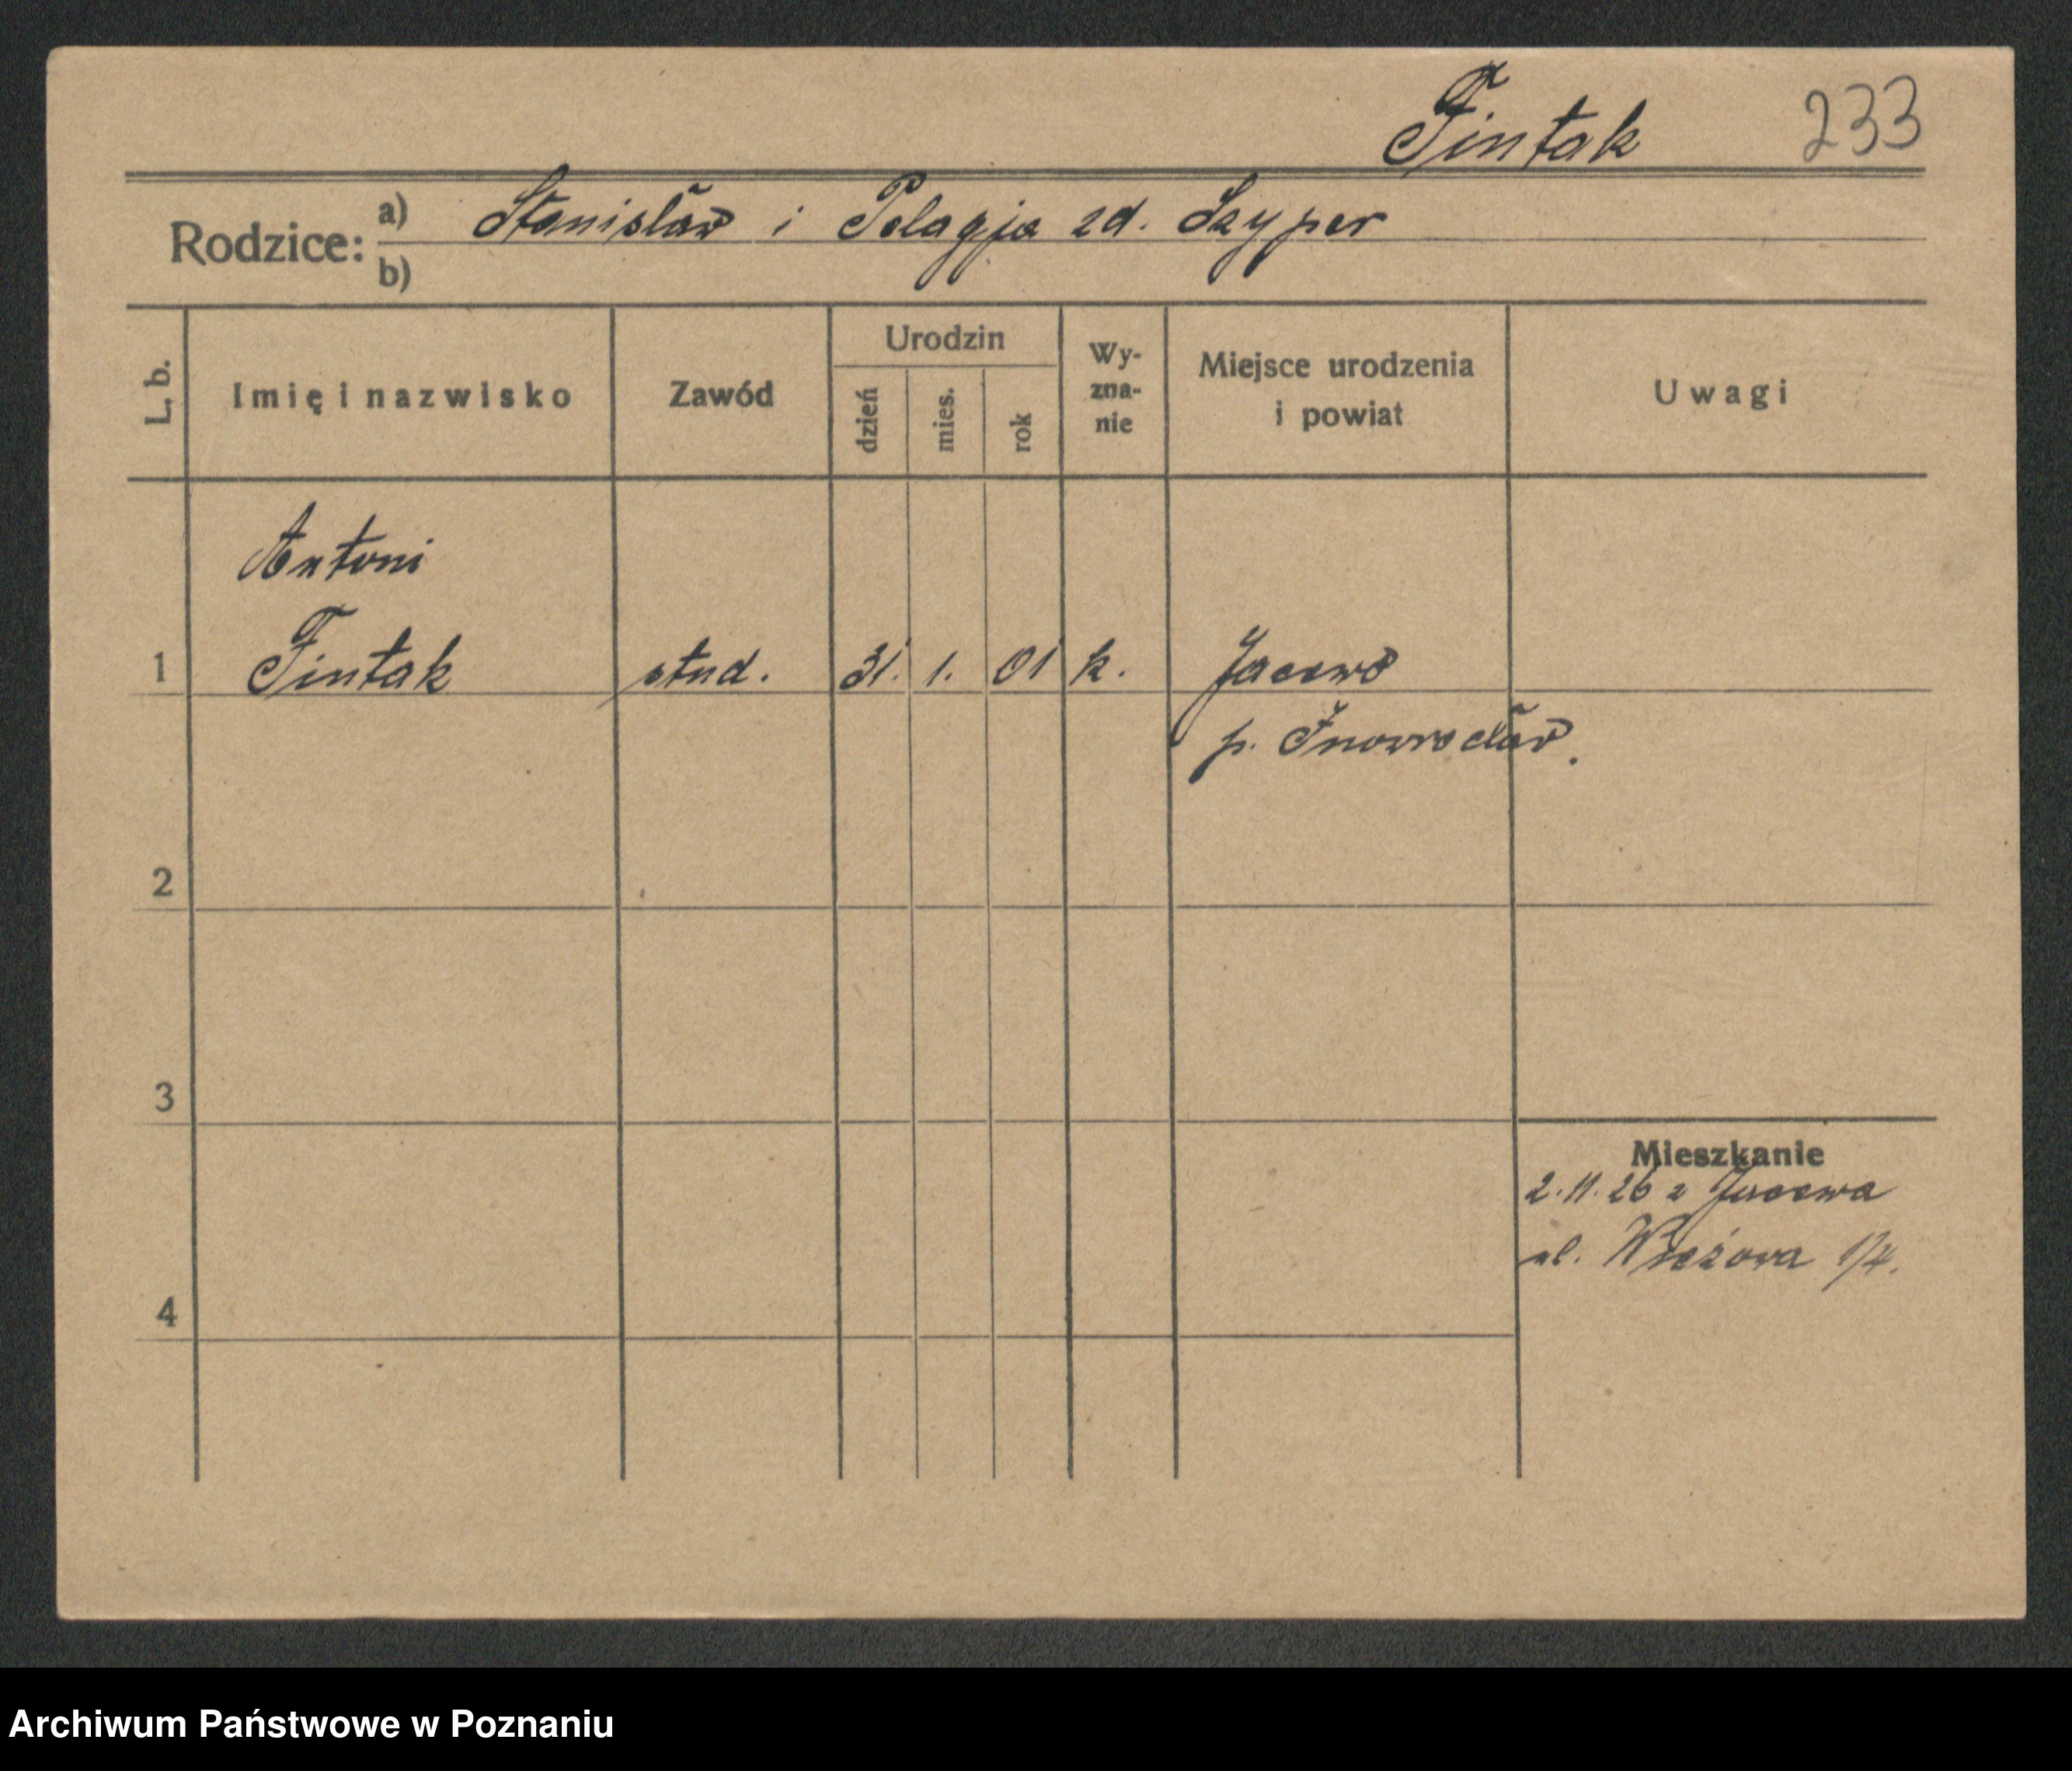 Fintak 233
Rodzice: a) Stanisław i Pelagja zd. Szyper
b)
L. b. Imię i nazwisko Zawód Urodzin dzień mies. rok Wyznanie Miejsce urodzenia i powiat Uwagi
Antoni
1 Fintak stud. 31. 1. 01 k. Jacewo
p. Inowrocław.
2
3
Mieszkanie
2.11.26 z Jacewa
ul. Wieżowa 1/4.
4
Archiwum Państwowe w Poznaniu